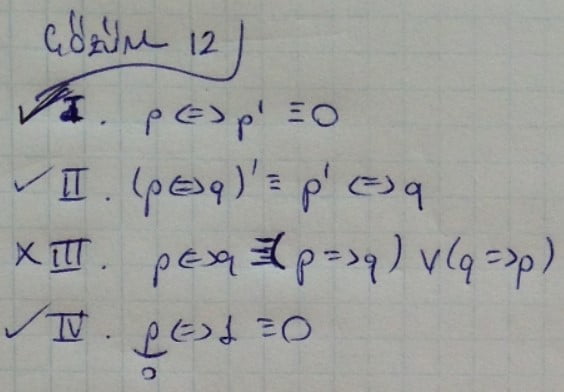 ÇÖZÜM 12)
✓ I. p <=> p' ≡ 0
✓ II. (p <=> q)' ≡ p' <=> q
X III. p <=> q ≡ (p => q) V (q => p)
✓ IV. p <=> 1 ≡ 0
0